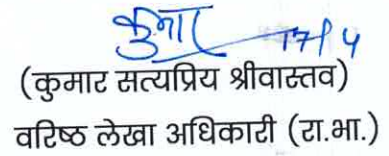 कुमार 17/4
(कुमार सत्यप्रिय श्रीवास्तव)
वरिष्ठ लेखा अधिकारी (रा.भा.)